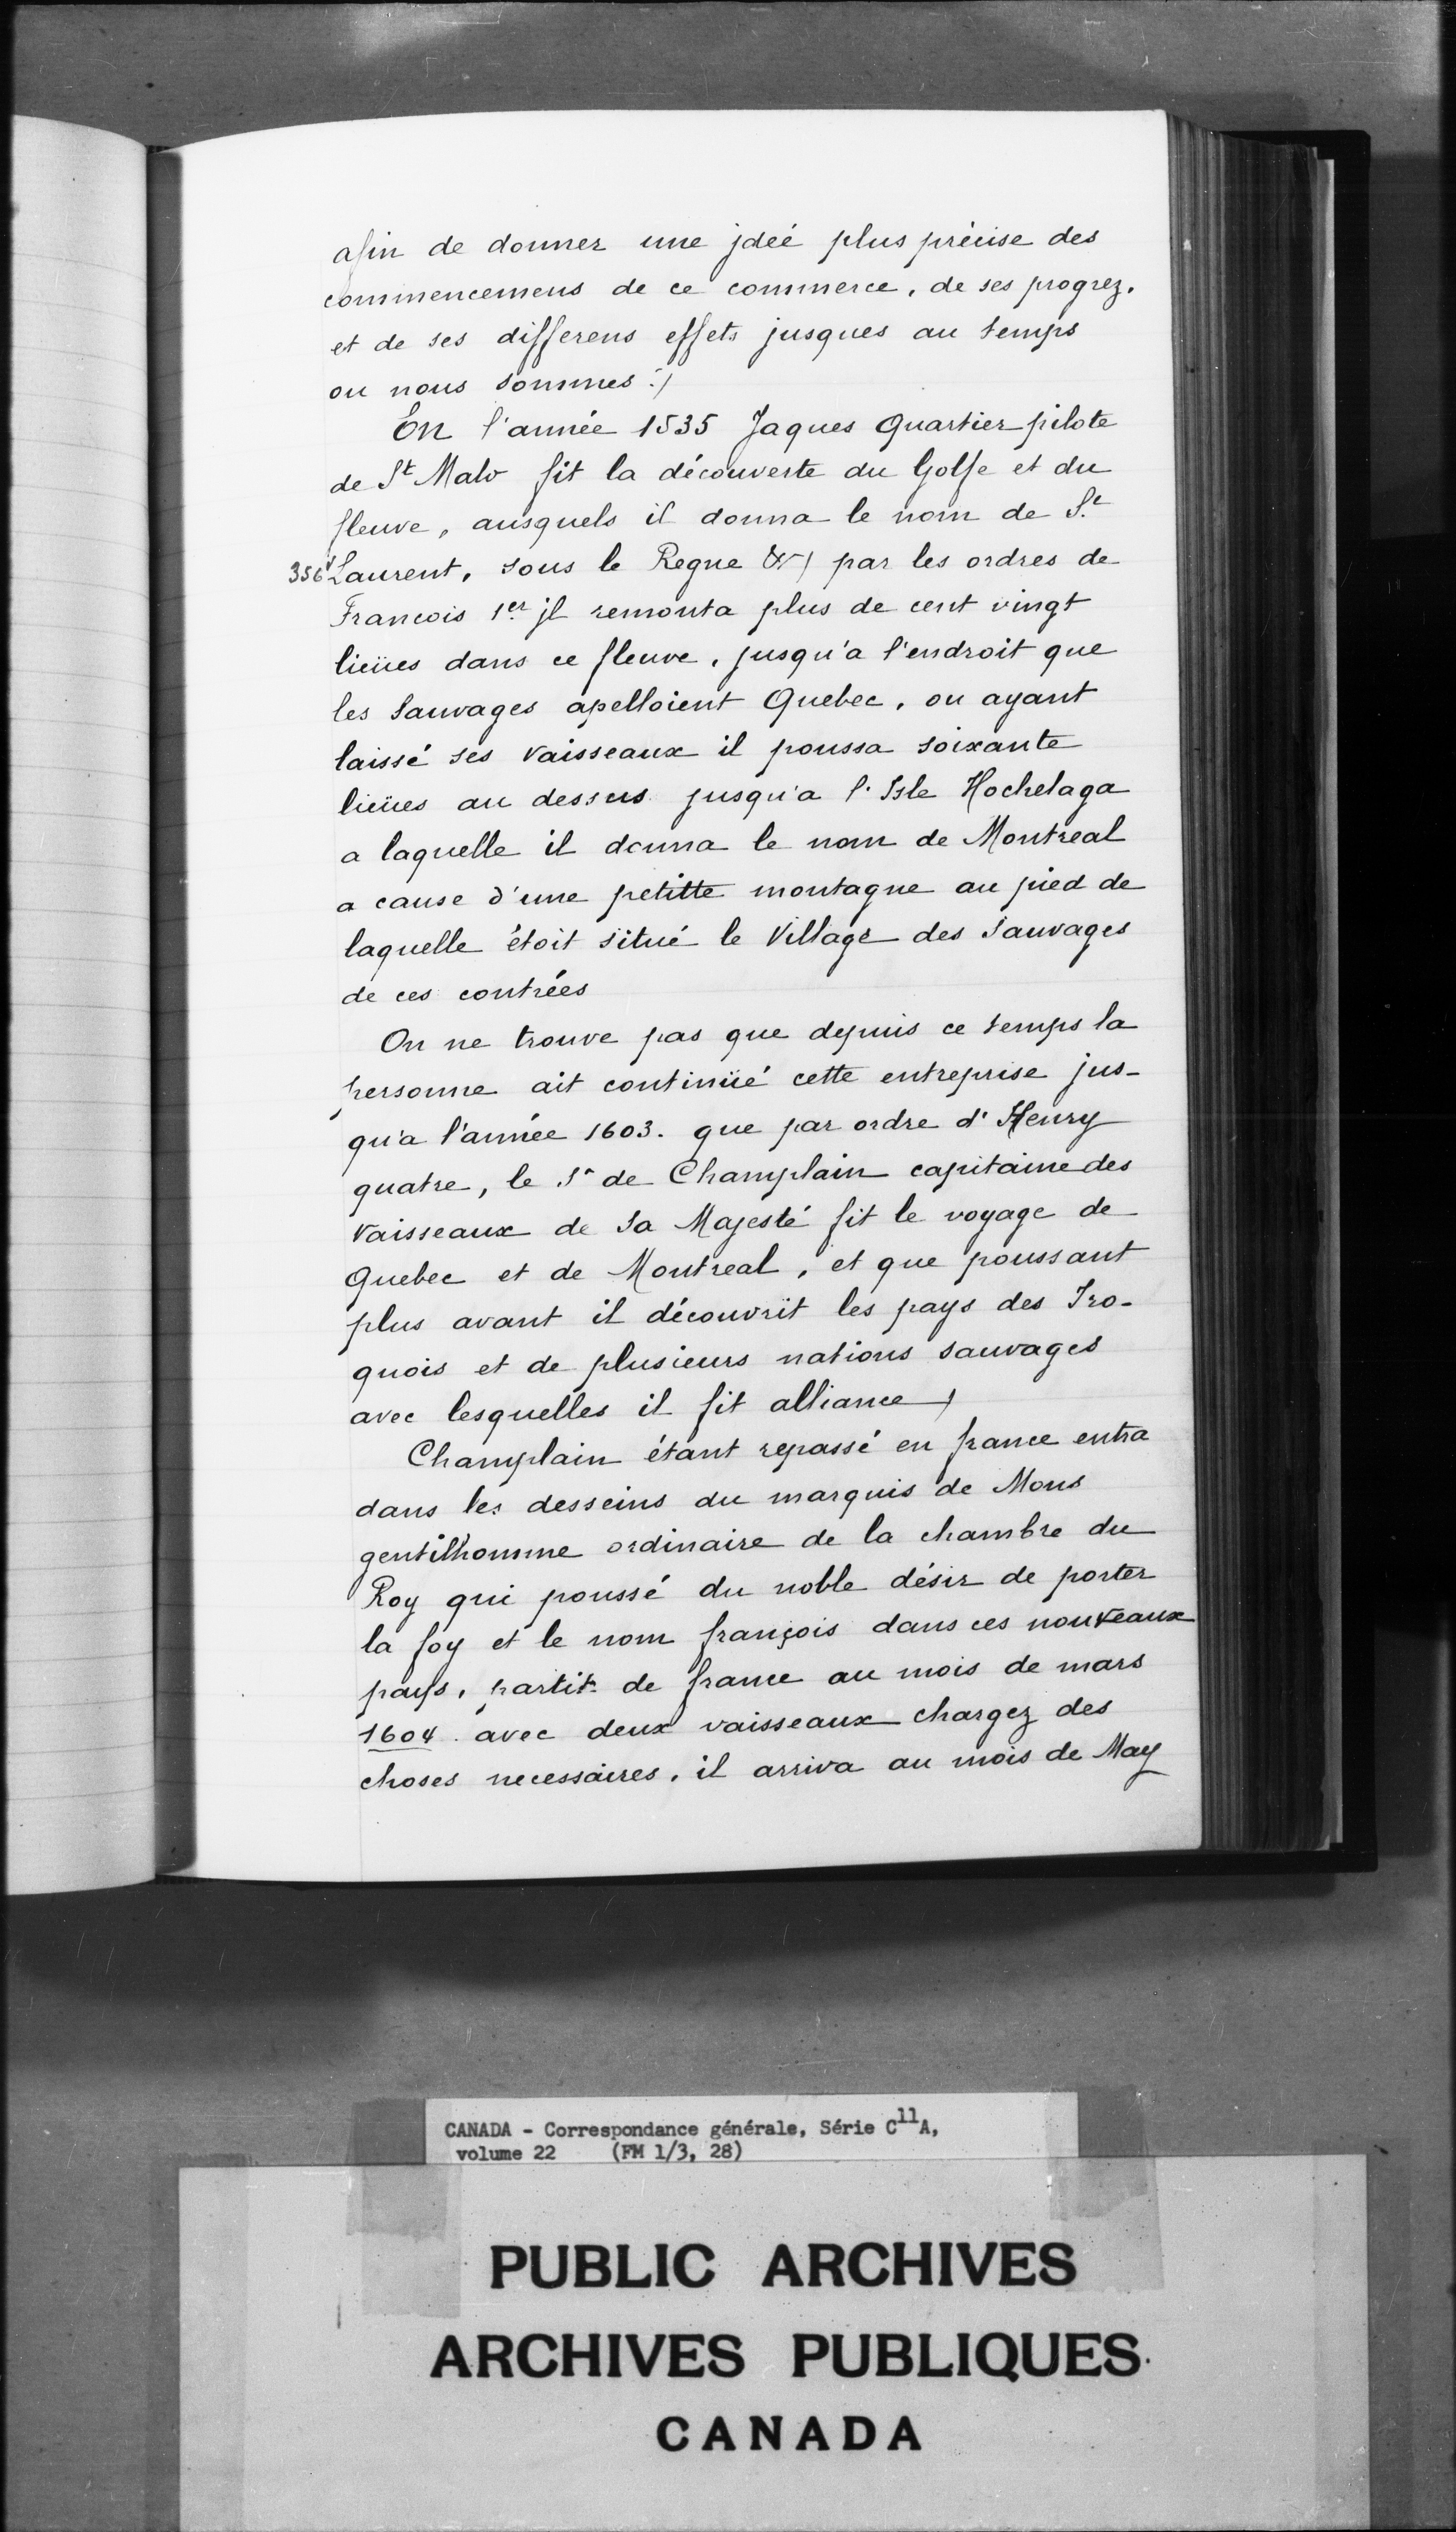 afin de donner une jdeé plus précise des
commencemens de ce commerce, de ses progrez,
et de ses differens effets jusques au temps
ou nous sommes :/
En l'année 1535 Jaques Quartier pilote
de St Malo fit la découverte du Golfe et du
fleuve, ausquels il donna le nom de St
356v Laurent, sous le Regne &/ par les ordres de
Francois 1er jl remonta plus de cent vingt
lieües dans ce fleuve, jusqu'a l'endroit que
les Sauvages apelloient Quebec, ou ayant
laissé ses vaisseaux il poussa soixante
lieües au dessus jusqu'a l'Isle Hochelaga
a laquelle il donna le nom de Montreal
a cause d'une petitte montagne au pied de
laquelle étoit situé le Village des Sauvages
de ces contrées
On ne trouve pas que depuis ce temps la
personne ait continüé cette entreprise jus-
qu'a l'année 1603. que par ordre d'Henry
quatre, le Sr de Champlain capitaine des
vaisseaux de Sa Majesté fit le voyage de
Quebec et de Montreal, et que poussant
plus avant il découvrit les pays des Iro-
quois et de plusieurs nations sauvages
avec lesquelles il fit alliance /
Champlain étant repassé en france entra
dans les desseins du marquis de Mons
gentilhomme ordinaire de la chambre du
Roy qui poussé du noble désir de porter
la foy et le nom françois dans ces nouveaux
pays, partit de france au mois de mars
1604 avec deux vaisseaux chargez des
choses necessaires, il arriva au mois de May
CANADA - Correspondance générale, Série C11A,
volume 22 (FM 1/3, 28)
PUBLIC ARCHIVES
ARCHIVES PUBLIQUES
CANADA